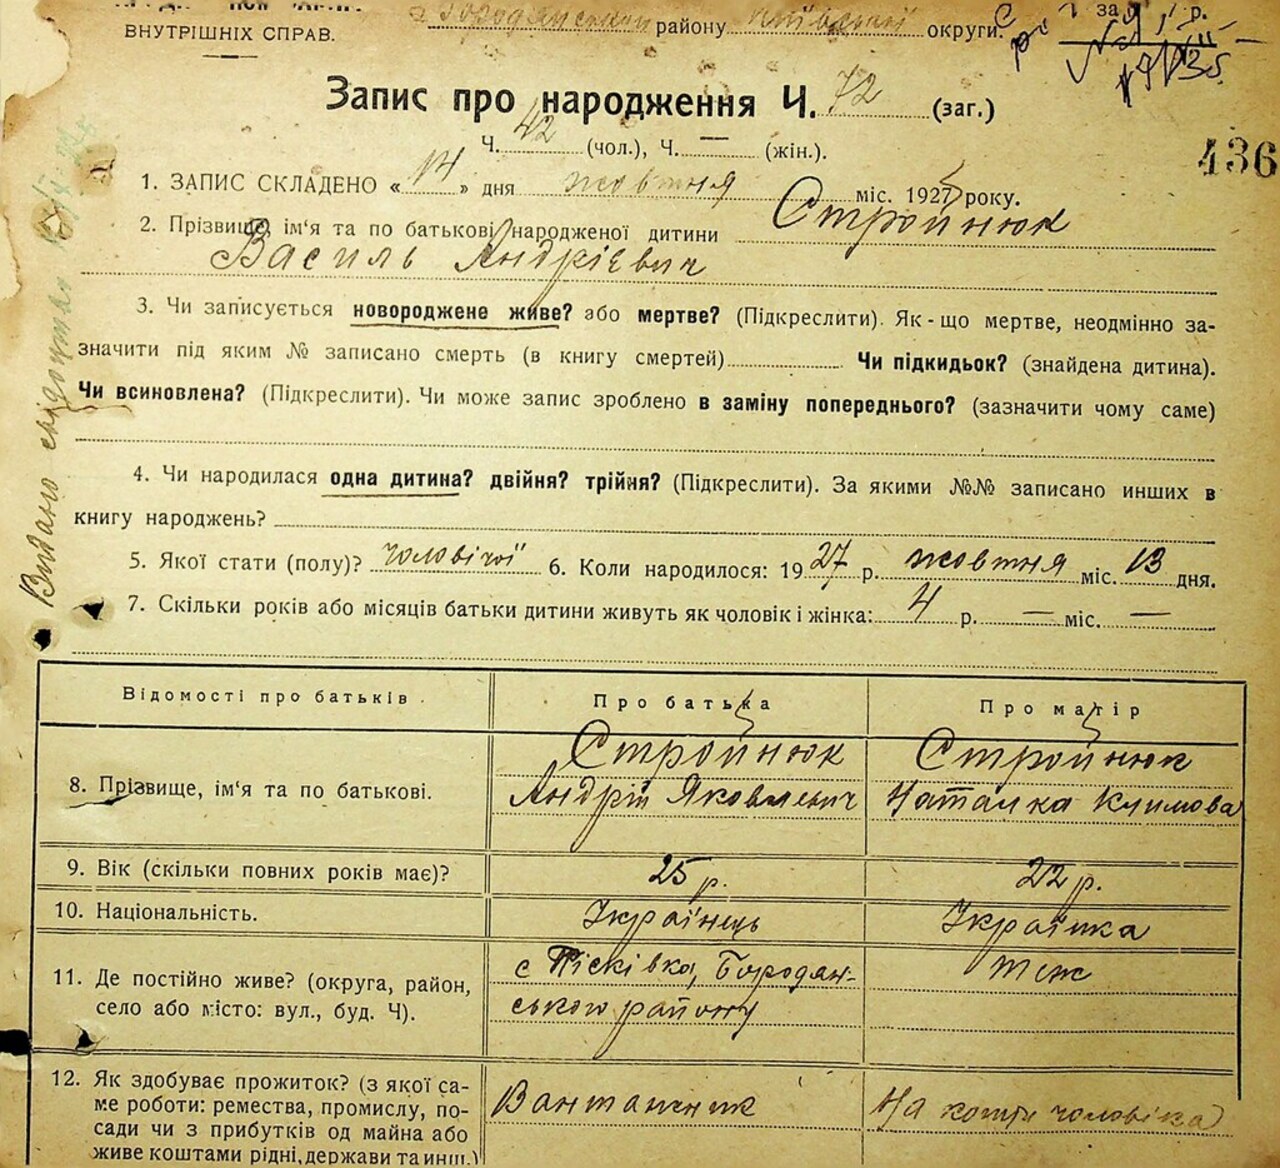 ВНУТРІШНІХ СПРАВ.
району округи.
Запис про народження Ч. 72 (заг.)
Ч. 42 (чол.), Ч. — (жін.).
436
1. ЗАПИС СКЛАДЕНО «14» дня жовтня міс. 1927 року.
2. Прізвище, ім'я та по батькові народженої дитини Стройнюк
Василь Андрієвич
3. Чи записується новороджене живе? або мертве? (Підкреслити). Як-що мертве, неодмінно за-
значити під яким № записано смерть (в книгу смертей) Чи підкидьок? (знайдена дитина).
Чи всиновлена? (Підкреслити). Чи може запис зроблено в заміну попереднього? (зазначити чому саме)
4. Чи народилася одна дитина? двійня? трійня? (Підкреслити). За якими №№ записано инших в
книгу народжень?
5. Якої стати (полу)? чоловічої 6. Коли народилося: 1927 р. жовтня міс. 13 дня.
7. Скільки років або місяців батьки дитини живуть як чоловік і жінка: 4 р. — міс. —
Відомості про батьків Про батька Про матір
Стройнюк Стройнюк
8. Прізвище, ім'я та по батькові. Андрій Яковлевич Наталка Климова
9. Вік (скільки повних років має)? 25 р. 22 р.
10. Національність. Українець Українка
11. Де постійно живе? (округа, район, с Пісківка, Бородян- теж
село або місто: вул., буд. Ч). ського району
12. Як здобуває прожиток? (з якої са-
ме роботи: ремества, промислу, по- Вантажник На кошти чоловіка
сади чи з прибутків од майна або
живе коштами рідні, держави та инш.)
Видано свідоцтво